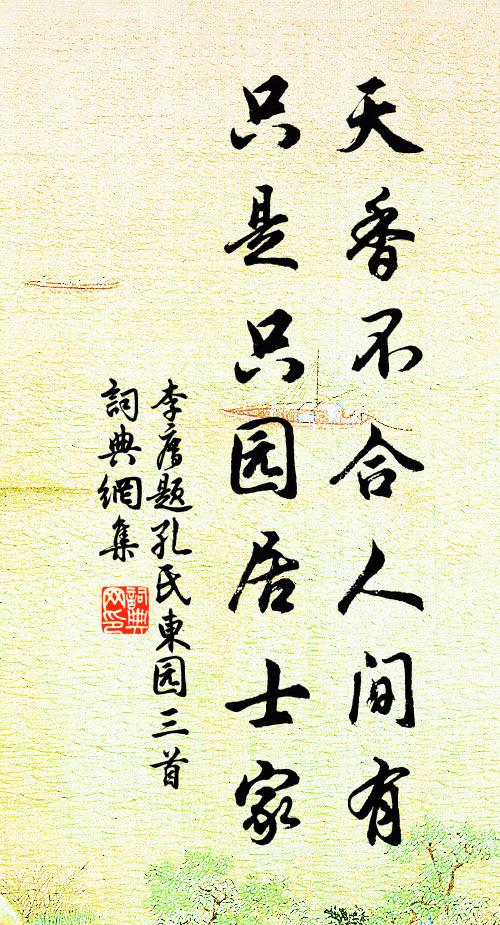 天香不合人间有
只是只园居士家
李廌题孔氏東园三首
詞典網集
詞典网印